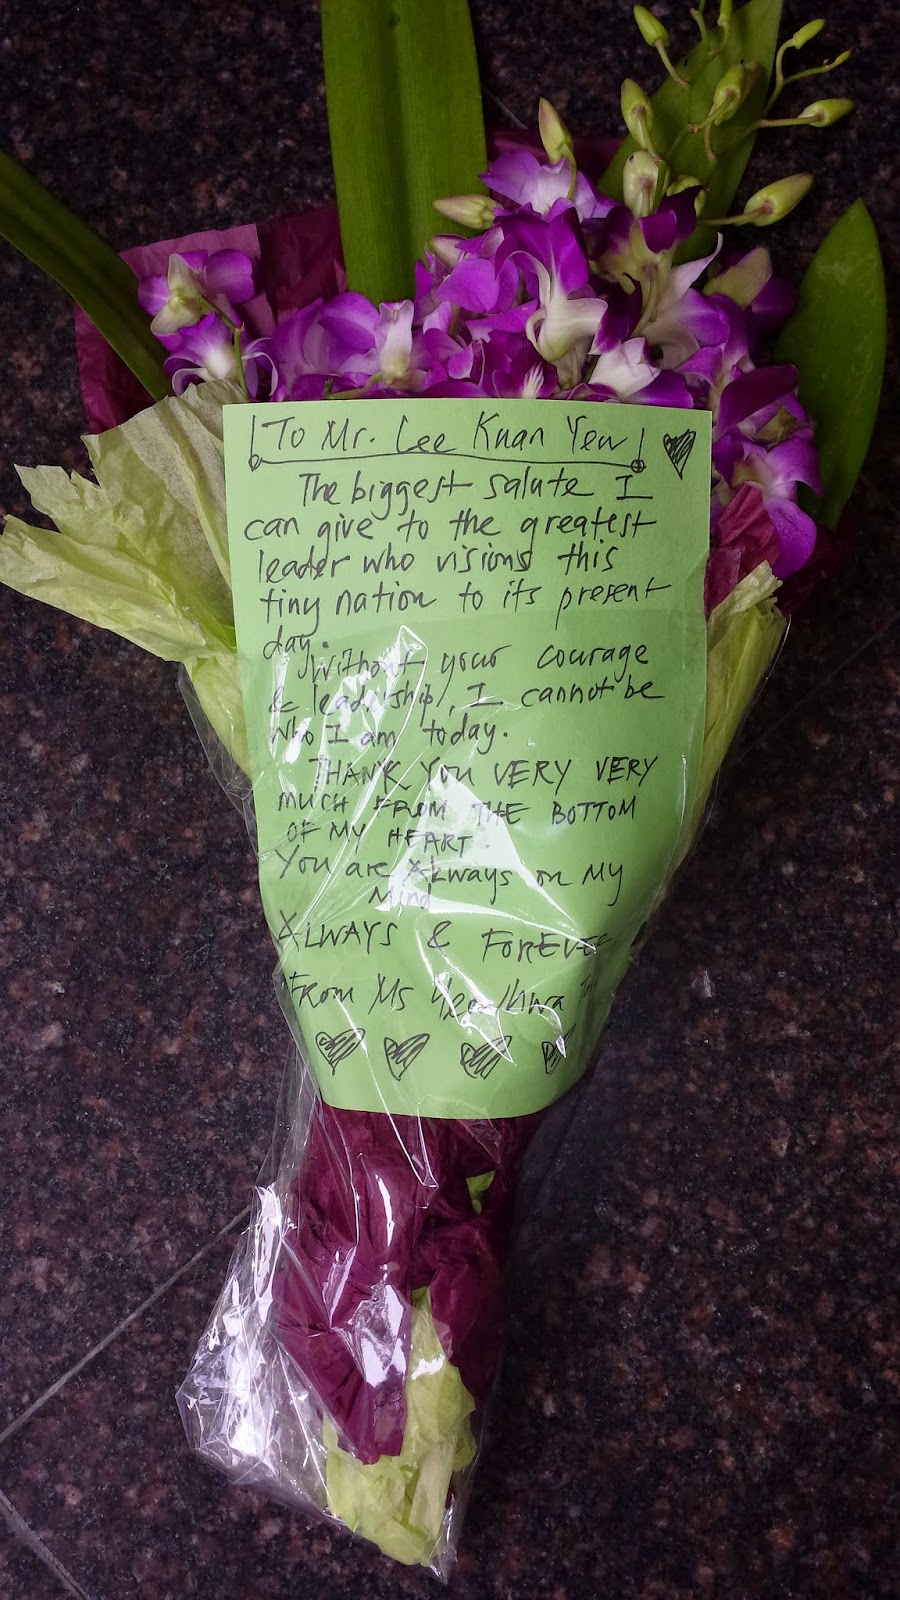 To Mr. Lee Kuan Yew
The biggest salute I
can give to the greatest
leader who visions this
tiny nation to its present
day.
Without your courage
& leadership, I cannot be
who I am today.
THANK YOU VERY VERY
MUCH FROM THE BOTTOM
OF MY HEART.
You are Always on My
Mind
ALWAYS &
From Ms